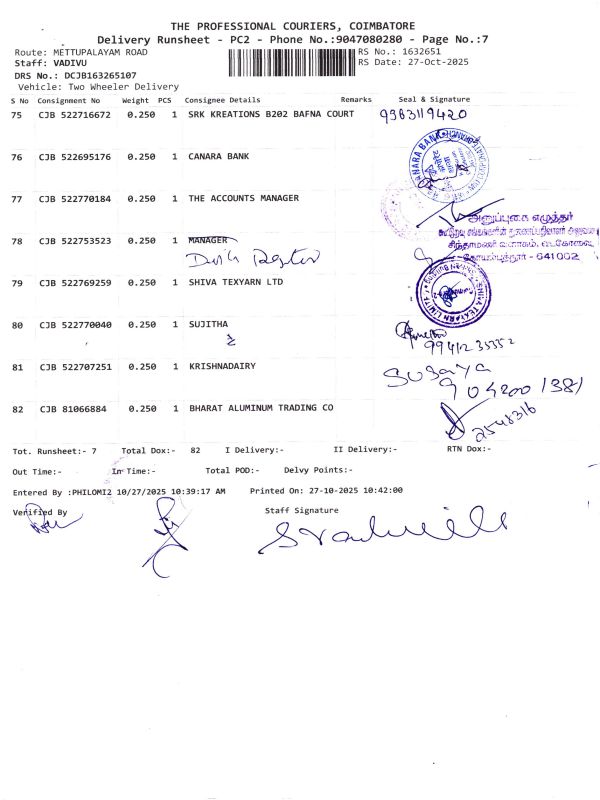 THE PROFESSIONAL COURIERS, COIMBATORE
Delivery Runsheet - PC2 - Phone No.:9047080280 - Page No.:7
Route: METTUPALAYAM ROAD RS No.: 1632651
Staff: VADIVU RS Date: 27-Oct-2025
DRS No.: DCJB163265107
Vehicle: Two Wheeler Delivery
S No Consignment No Weight PCS Consignee Details Remarks Seal & Signature
75 CJB 522716672 0.250 1 SRK KREATIONS B202 BAFNA COURT 9363119420
76 CJB 522695176 0.250 1 CANARA BANK
CANARA BANK
77 CJB 522770184 0.250 1 THE ACCOUNTS MANAGER
அனுப்புகை எழுத்தர்
78 CJB 522753523 0.250 1 MANAGER
சிந்தாமணி வளாகம்
கோயம்புத்தூர் - 641002
79 CJB 522769259 0.250 1 SHIVA TEXYARN LTD
SHIVA TEXYARN LIMITED
80 CJB 522770040 0.250 1 SUJITHA
99412 35352
81 CJB 522707251 0.250 1 KRISHNADAIRY
82 CJB 81066884 0.250 1 BHARAT ALUMINUM TRADING CO
2548316
Tot. Runsheet:- 7 Total Dox:- 82 I Delivery:- II Delivery:- RTN Dox:-
Out Time:- In Time:- Total POD:- Delvy Points:-
Entered By :PHILOMI2 10/27/2025 10:39:17 AM Printed On: 27-10-2025 10:42:00
Verified By Staff Signature